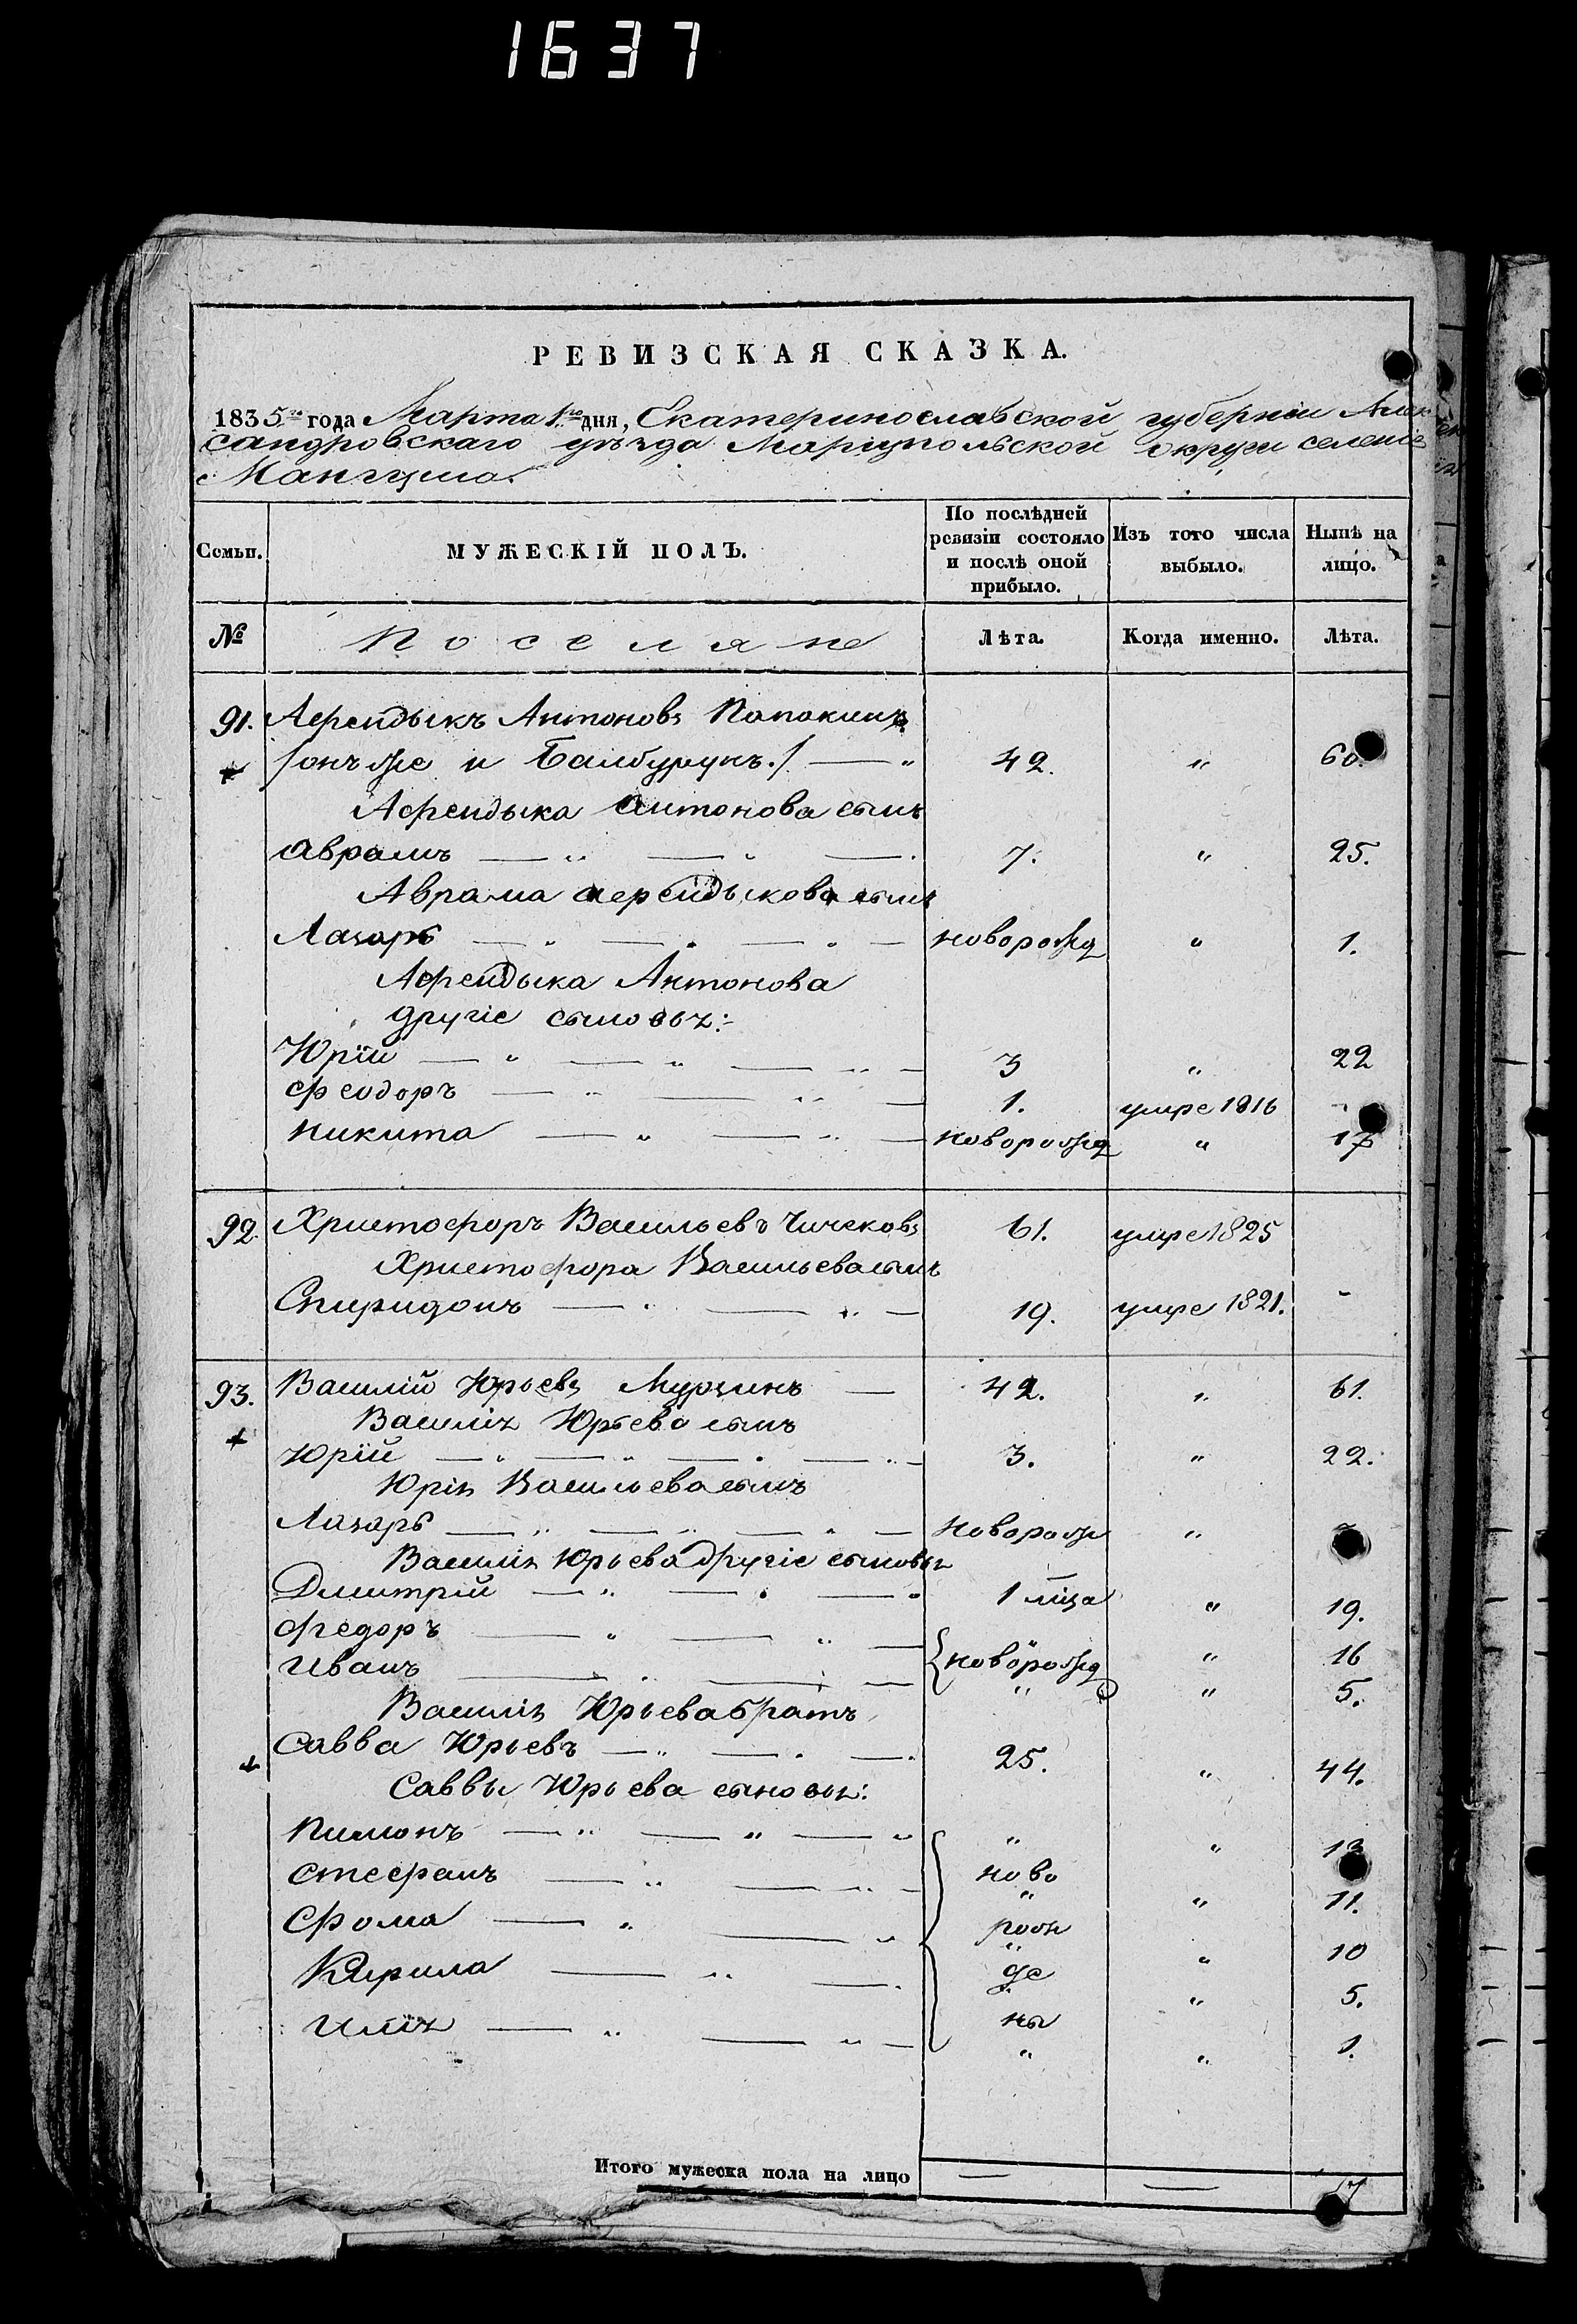 1637
РЕВИЗСКАЯ СКАЗКА.
1835го года Марта 1го дня, Екатеринославской губернии Алек
сандровскаго уѣзда Маріупольской округи селенія
Мангуша.
Семьи. МУЖЕСКІЙ ПОЛЪ. По послѣдней ревизіи состояло и послѣ оной прибыло. Изъ того числа выбыло. Нынѣ на лицо.
№ Поселяне Лѣта. Когда именно. Лѣта.
91. Афендыкъ Антоновъ Папакинъ
/онъ же и Бамбурукъ./ — „ 42. „ 60.
Афендыка Антонова сынъ
Аврамъ — „ — „ — 7. „ 25.
Аврама Афендыкова сынъ
Лазарь — „ — „ — „ — новорожд „ 1.
Афендыка Антонова
другіе сыновья:
Юрій — „ — „ — „ — 3 „ 22
Феодоръ — „ — „ — 1. умре 1816 -
Никита — „ — „ — новорожд „ 17
92. Христофоръ Васильевъ Чичековъ 61. умре 1825
Христофора Васильева сынъ
Спиридонъ — „ — „ — 19. умре 1821. -
93. Василій Юрьевъ Мурзинъ — 42. „ 61.
Василія Юрьева сынъ
Юрій — „ — „ — „ — „ — 3. „ 22.
Юрія Васильева сынъ
Лазарь — „ — „ — „ — новорож „
Василія Юрьева другіе сыновья
Дмитрій — „ — „ — „ 1 мца „ 19.
Федоръ — „ — „ — новорожд „ 16
Иванъ — „ — „ — „ „ 5.
Василія Юрьева братъ
Савва Юрьевъ — „ — „ — 25. „ 44.
Саввы Юрьева сыновья:
Пимонъ — „ — „ — „ „ „ 13
Стефанъ — „ — „ — ново „ 11.
Фома — „ — „ рож „ 10
Кирила — „ — де „ 5.
Илія — „ — „ — ны „ 1.
Итого мужеска пола на лицо — — 17